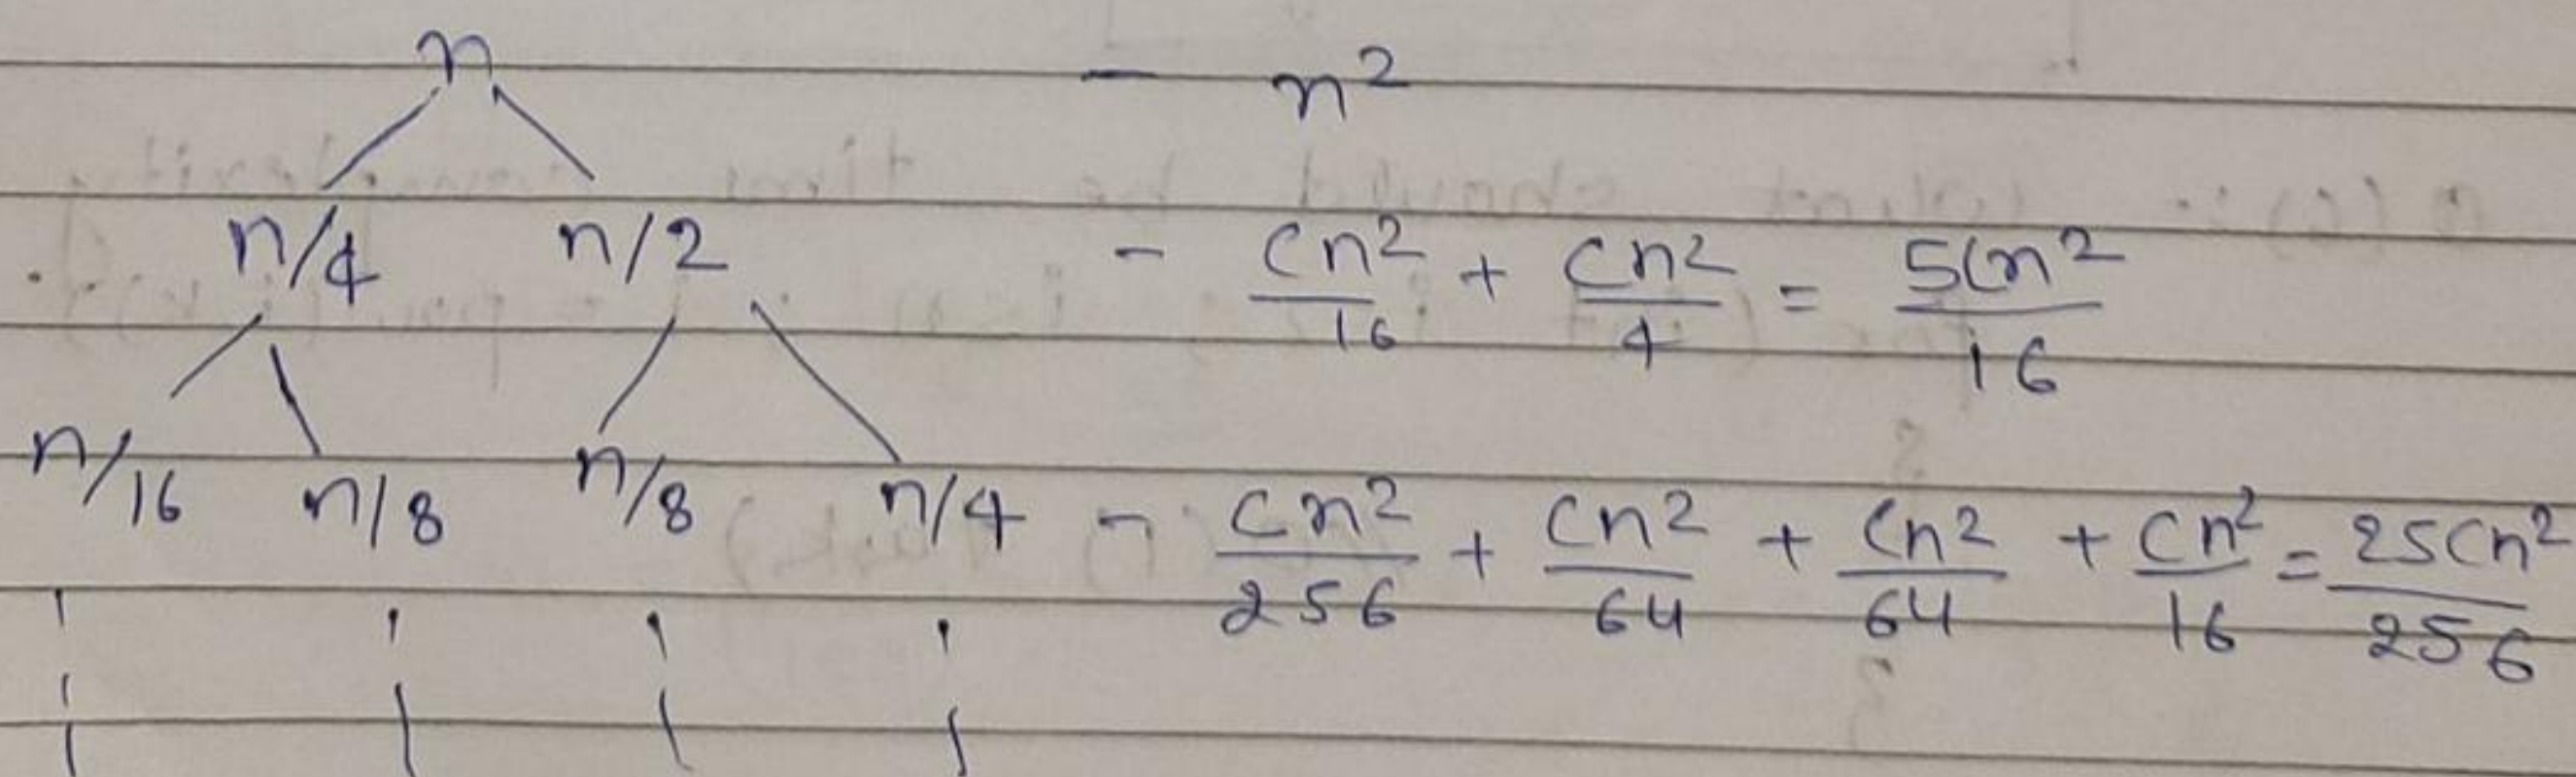 n - n²
n/4 n/2 - cn²/16 + cn²/4 = 5cn²/16
n/16 n/8 n/8 n/4 - cn²/256 + cn²/64 + cn²/64 + cn²/16 = 25cn²/256